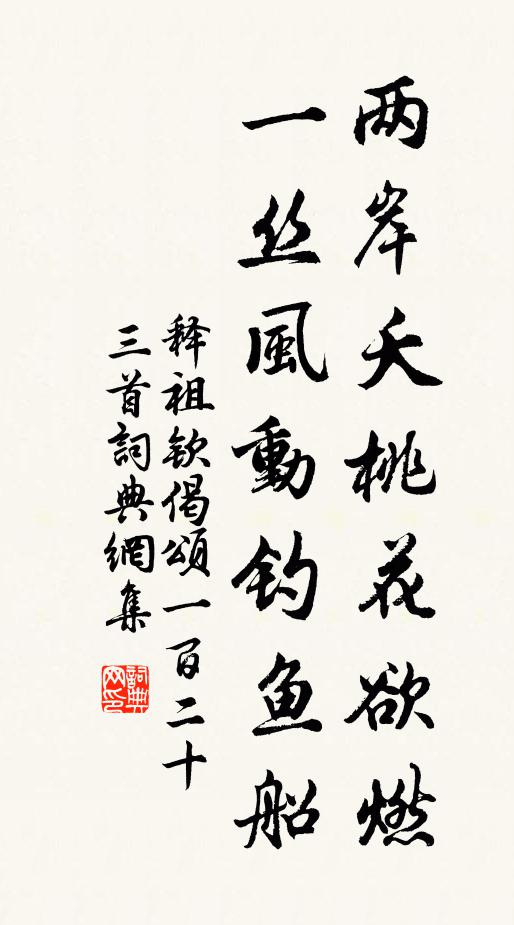 两岸夭桃花欲燃
一丝風動钓鱼船
释祖钦偈頌一百二十
三首詞典網集
詞典
网印